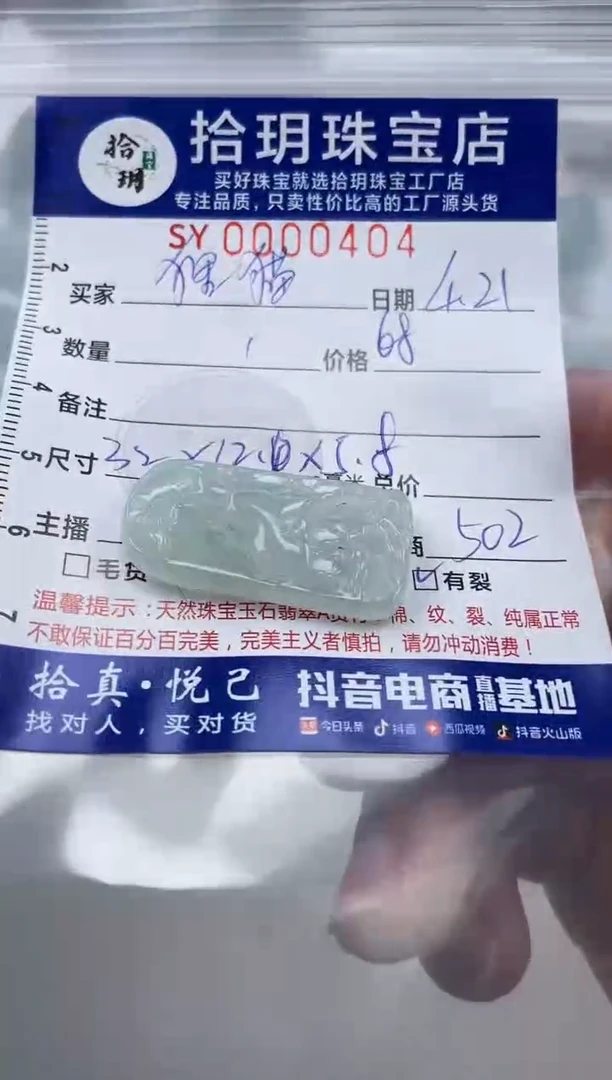 拾玥
拾玥珠宝店
买好珠宝就选拾玥珠宝工厂店
专注品质,只卖性价比高的工厂源头货
SY 0000404
买家 猓猫 日期 4.21
数量 1 价格 68
备注
尺寸 32×12.0×5.8 毫米 总价
主播 商 502
毛货 有裂
温馨提示:天然珠宝玉石翡翠A货 棉、纹、裂、纯属正常
不敢保证百分百完美,完美主义者慎拍,请勿冲动消费!
拾真·悦己 抖音电商直播基地
找对人,买对货 今日头条 抖音 西瓜视频 抖音火山版
2
3
4
5
6
7